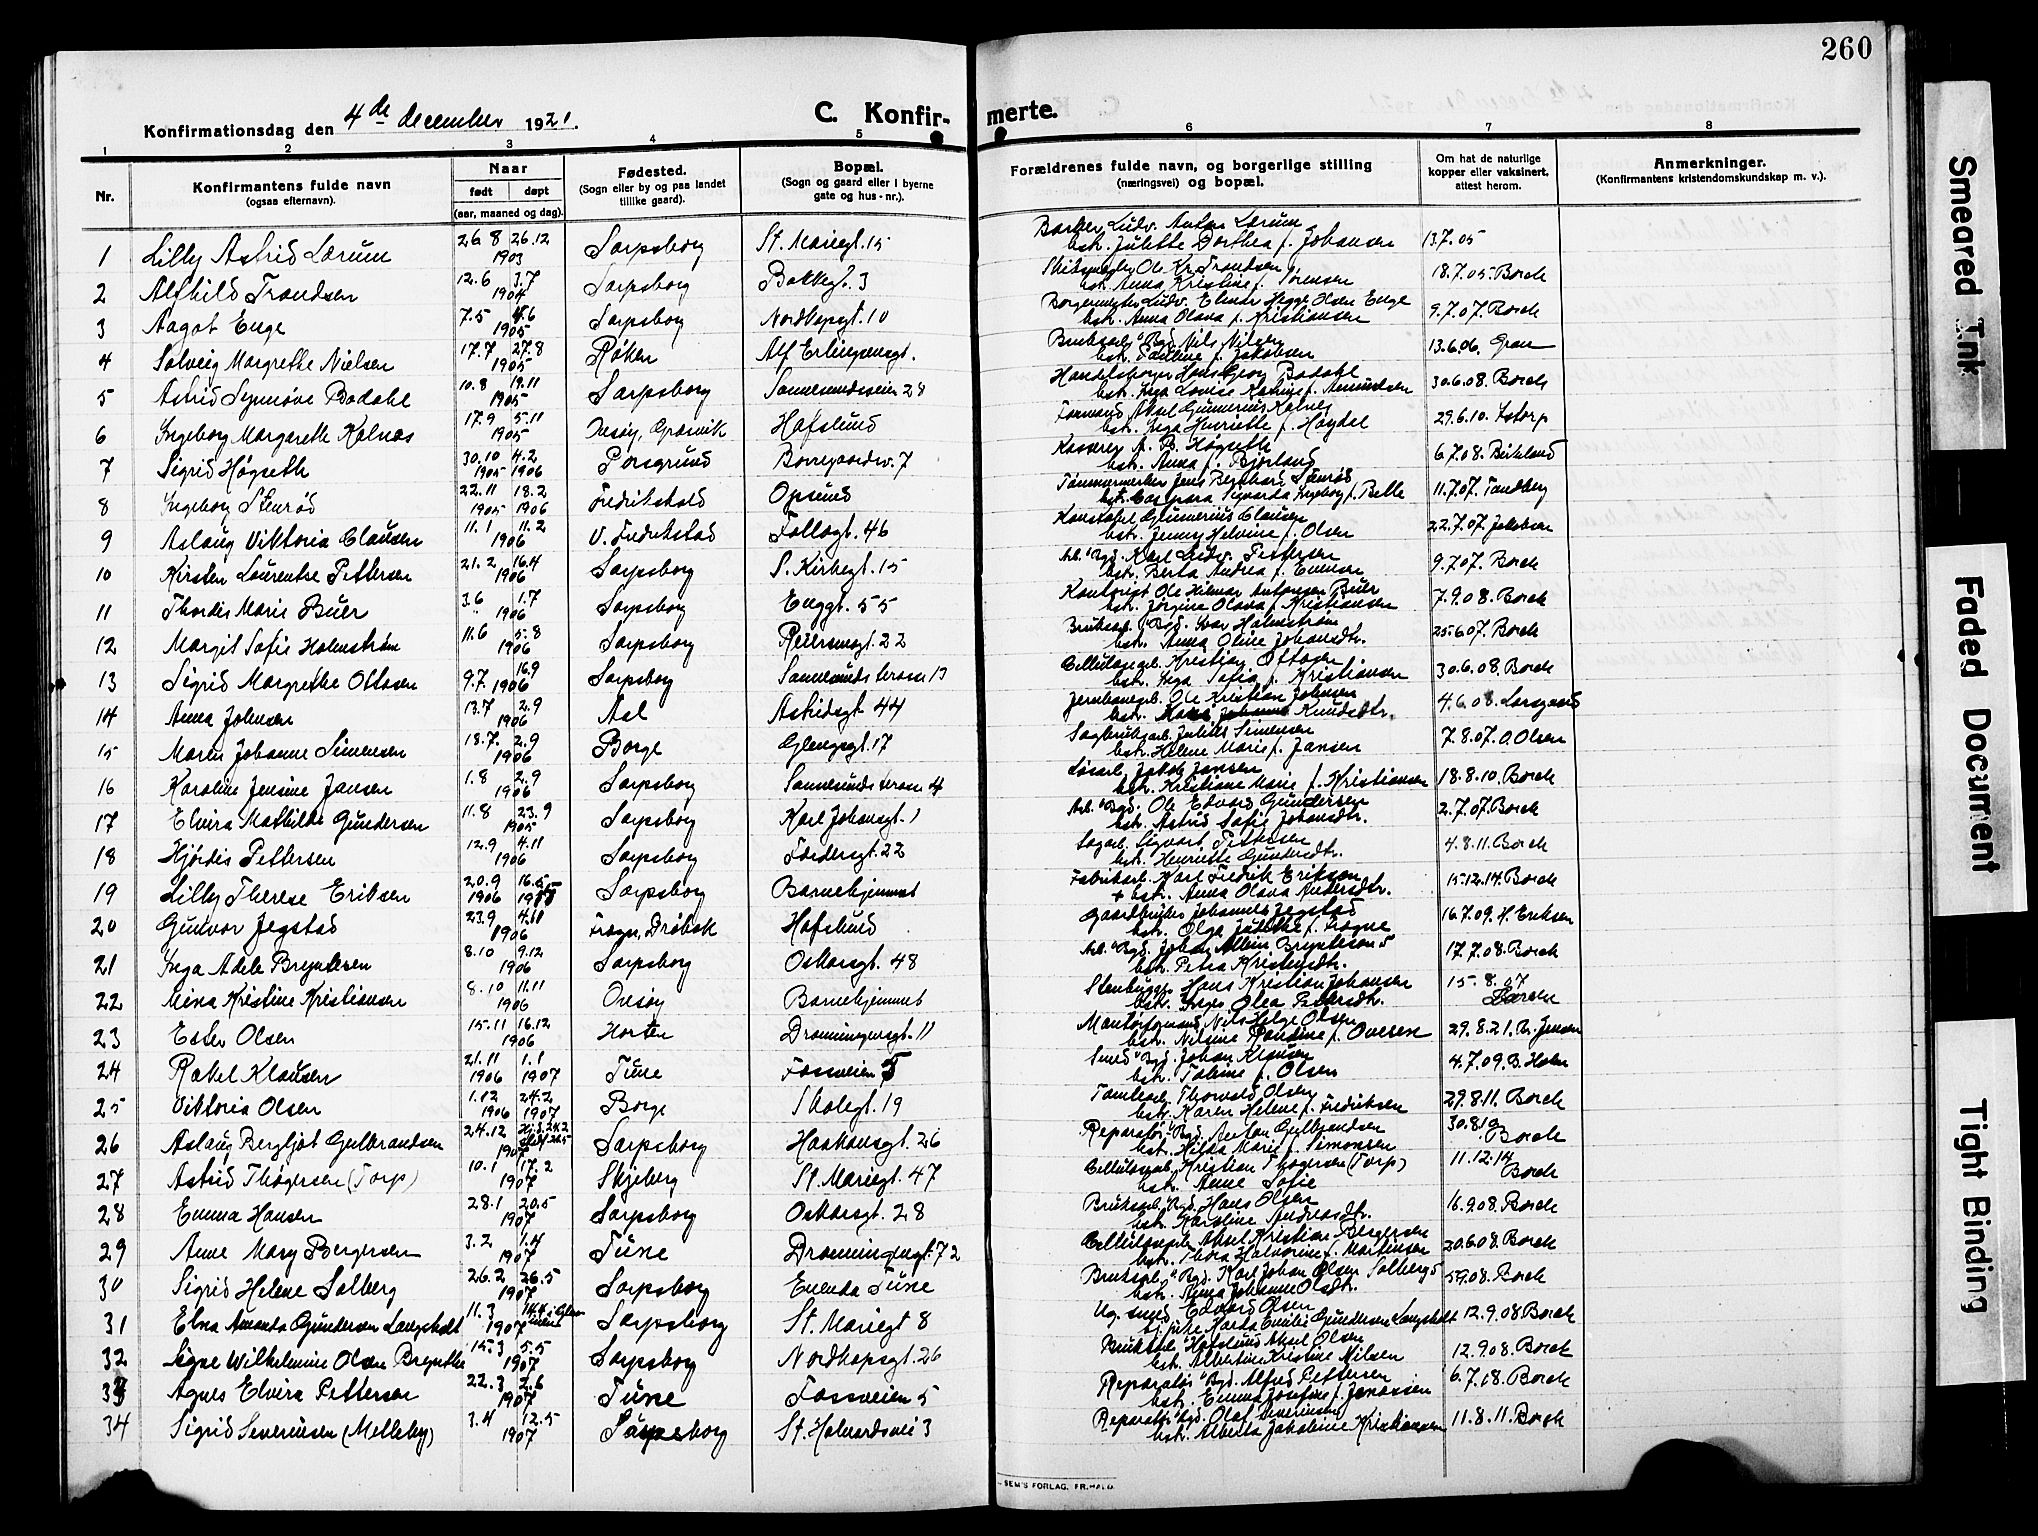 260
Konfirmationsdag den 4de december 1921.
C. Konfirmerte.
1 2 3 4 5 6 7 8
Nr. Konfirmantens fulde navn (ogsaa efternavn). Naar født døpt (aar, maaned og dag). Fødested. (Sogn eller by og paa landet tillike gaard). Bopæl. (Sogn og gaard eller i byerne gate og hus-nr.). Forældrenes fulde navn, og borgerlige stilling (næringsvei) og bopæl. Om hat de naturlige kopper eller vaksinert, attest herom. Anmerkninger. (Konfirmantens kristendomskundskap m. v.).
1 Lilly Astrid Lærum 26.8 26.12 1903 Sarpsborg St. Mariegt. 15 Barber Ludv. Anton Lærum hstr. Julette Dorthea f. Johansen 13.7.05
2 Alfhild Trondsen 12.6 3.7 1904 Sarpsborg Bakkegt. 3 Ole Kr. Trondsen hstr. Anna Kristine f. Sørensen 18.7.05 Borch
3 Aagot Enge 7.5 4.6 1905 Sarpsborg Nordkapgt. 10 Borgermester Ludv. Elmar Hegge Olsen Enge hstr. Anna Olava f. Kristiansen 9.7.07. Borch
4 Solveig Margrethe Nielsen 17.7 27.8 1905 Røken Alf Erlingsensgt. Bruksarb. v. Bgd. Nils Nilsen hstr. Pauline f. Jakobsen 13.6.06. Gran
5 Astrid Synnøve Bodahl 10.8 19.11 1905 Sarpsborg Sannesundsveien 28 Handelsborger Hans Georg Bodahl hstr. Inga Lovise Katrine f. Amundsen 30.6.08. Borch
6 Ingeborg Margarethe Kalnæs 17.9 5.11 1905 Onsøy, Græsvik Hafslund Formand Aksel Gunnerius Kalnes hstr. Inga Henriette f. Høydal 29.6.10. Istorp
7 Sigrid Høgseth 30.10 1905 4.2 1906 Porsgrund Borregaardsv. 7 Kasserer A. B. Høgseth hstr. Anna f. Bjørland 6.7.08. Birkeland
8 Ingeborg Stenrød 22.11 1905 18.2 1906 Fredrikshald Opsund Tømmermerker Jens Bernhard Stenrød hstr. Caspara Sigvarda Ingeborg f. Belle 11.7.07. Tandberg
9 Aslaug Viktoria Clausen 11.1 11.2 1906 V. Fredrikstad Follogt. 46 Konstabel Gunnerius Clausen hstr. Jenny Helvine f. Olsen 22.7.07. Jakobsen
10 Kirsten Laurentse Pettersen 21.2 16.4 1906 Sarpsborg S. Kirkegt. 15 Arb. v. Bgd. Karl Ludv. Pettersen hstr. Berta Andrea f. Evensen 9.7.07. Borch
11 Thordis Marie Buer 3.6 1.7 1906 Sarpsborg Enggt. 55 Kontorist Ole Hilmar Antonsen Buer hstr. Jørgine Olava f. Kristiansen 7.9.08. Borch
12 Margit Sofie Holmstrøm 11.6 5.8 1906 Sarpsborg Petersensgt. 22 Bruksarb. v. Bgd. Ivar Holmstrøm hstr. Anna Oline Johansdtr. 25.6.07. Borch
13 Sigrid Margrethe Ottosen 9.7. 16.9 1906 Sarpsborg Sannesunds terasse 13 Cellulosearb. Kristian Ottosen hstr. Inga Sofia f. Kristiansen 30.6.08. Borch
14 Anna Johnsen 13.7 2.9 1906 Aal Astridsgt. 44 Jernbanearb. Ole Kristian Johnsen hstr. Knudsdtr. 4.6.08. Larsgaard
15 Maren Johanne Simensen 18.7. 2.9 1906 Borge Glengsgt. 17 Sagbruksarb. Julius Simensen hstr. Helene Marie f. Jansen 7.8.07. O. Olsen
16 Karoline Jensine Jansen 1.8 2.9 1906 Sarpsborg Sannesunds terasse 4 Løsarb. Jakob Jansen hstr. Kristiane Marie f. Kristiansen 18.8.10. Borch
17 Elvira Mathilde Gundersen 11.8 23.9 1905 Sarpsborg Karl Johansgt. 1 Arb. v. Bgd. Ole Edvard Gundersen hstr. Astrid Sofie Johansdtr. 2.7.07. Borch
18 Hjørdis Pettersen 12.9 4.11 1906 Sarpsborg Fædersgt. 22 Sagarb. Sigvart Pettersen hstr. Henriette Gundersdtr. 4.8.11. Borch
19 Lilly Therese Eriksen 20.9 1906 16.5 Sarpsborg Barnehjemmet Fabrikarb. Karl Fredrik Eriksen + hstr. Anna Olava Andersdtr. 15.12.14. Borch
20 Gunvor Jegstad 23.9 4.11 1906 Frogn, Drøbak Hafslund Gaardbruker Johannes Jegstad hstr. Olga Julette f. Frogne 16.7.09. H. Eriksen
21 Inga Adele Bryntesen 8.10 9.12 1906 Sarpsborg Oskarsgt. 48 Arb. v. Bgd. Johan Albin Bryntesen hstr. Petra Kristensdtr. 17.7.08. Borch
22 Mina Kristine Kristiansen 8.10 11.11 1906 Onsøy Barnehjemmet Stenhugger Hans Kristian Johansen hstr. Olea 15.8.07
23 Ester Olsen 15.11 16.12 1906 Horten Dronningensgt. 11 Montørformand Nils Helge Olsen hstr. Nilsine f. Ovesen 29.8.21. Br. Jensen
24 Rakel Klausen 21.11 1906 1.1 1907 Tune Fossveien 5 Smed v. Bgd. Johan Klausen hstr. Tomine f. Olsen 4.7.09. B. Holm
25 Viktoria Olsen 1.12 1906 24.2 1907 Borge Skolegt. 19 Tomtearb. Thorvald Olsen hstr. Karen Helene f. Fredriksen 29.8.11. Borch
26 Aslaug Bergljot Gulbrandsen 24.12 Hjd. 24.2 1907 Sarpsborg Haakonsgt. 26 Reparatør v. Bgd. Anton Gulbrandsen hstr. Hilda Marie f. Simonsen 30.8.10 Borch
27 Astrid Thøgersen (Torp) 10.1 17.2 1907 Skjeberg St. Mariegt. 47 Cellulosearb. Kristian Thøgersen (Torp) hstr. Anne Sofie 11.12.14 Borch
28 Emma Hansen 28.1 20.5 1907 Sarpsborg Oskarsgt. 28 Bruksarb. v. Bgd. Hans Olsen hstr. Karoline Andreasdtr. 16.9.08. Borch
29 Anne Mary Bergersen 3.2 1.4 1907 Tune Dronningensgt. 72 Cellulosearb. Aksel Kristian Bergersen hstr. Thora Halvorine f. Martinsen 20.6.08. Borch
30 Sigrid Helene Solberg 26.2 26.5 1907 Sarpsborg Enenda Tune Bruksarb. v. Bgd. Karl Johan Olsen Solberg hstr. Anna Johanne Olsdtr. 5.9.08. Borch
31 Elna Amanda Gundersen Langholt 11.3 1907 Sarpsborg St. Mariegt 8 Ug. smed Edvard Olsen Marda Emilie Gundersen Langholt 12.9.08 Borch
32 Signe Wilhelmine Olsen Brynthe 15.3 5.5 1907 Sarpsborg Nordkapsgt. 26 Bruksarb. v. Hafslund Aksel Olsen hstr. Albertine Kristine Nilsen 12.9.08. Borch
33 Agnes Elvira Pettersen 22.3 2.6 1907 Tune Fossveien 5 Reparatør v. Bgd. Alfred Pettersen hstr. Emma Josefine f. Jonassen 6.7.08. Borch
34 Sigrid Severinsen (Melleby) 3.4 12.5 1907 Sarpsborg St. Halvardsvei 3 Reparatør v. Bgd. Olaf Severinsen hstr. Alberta Jakobine Kristiansen 11.8.11. Borch
SEM'S FORLAG, FR.HALD.
Smeared Ink
Faded Document
Tight Binding